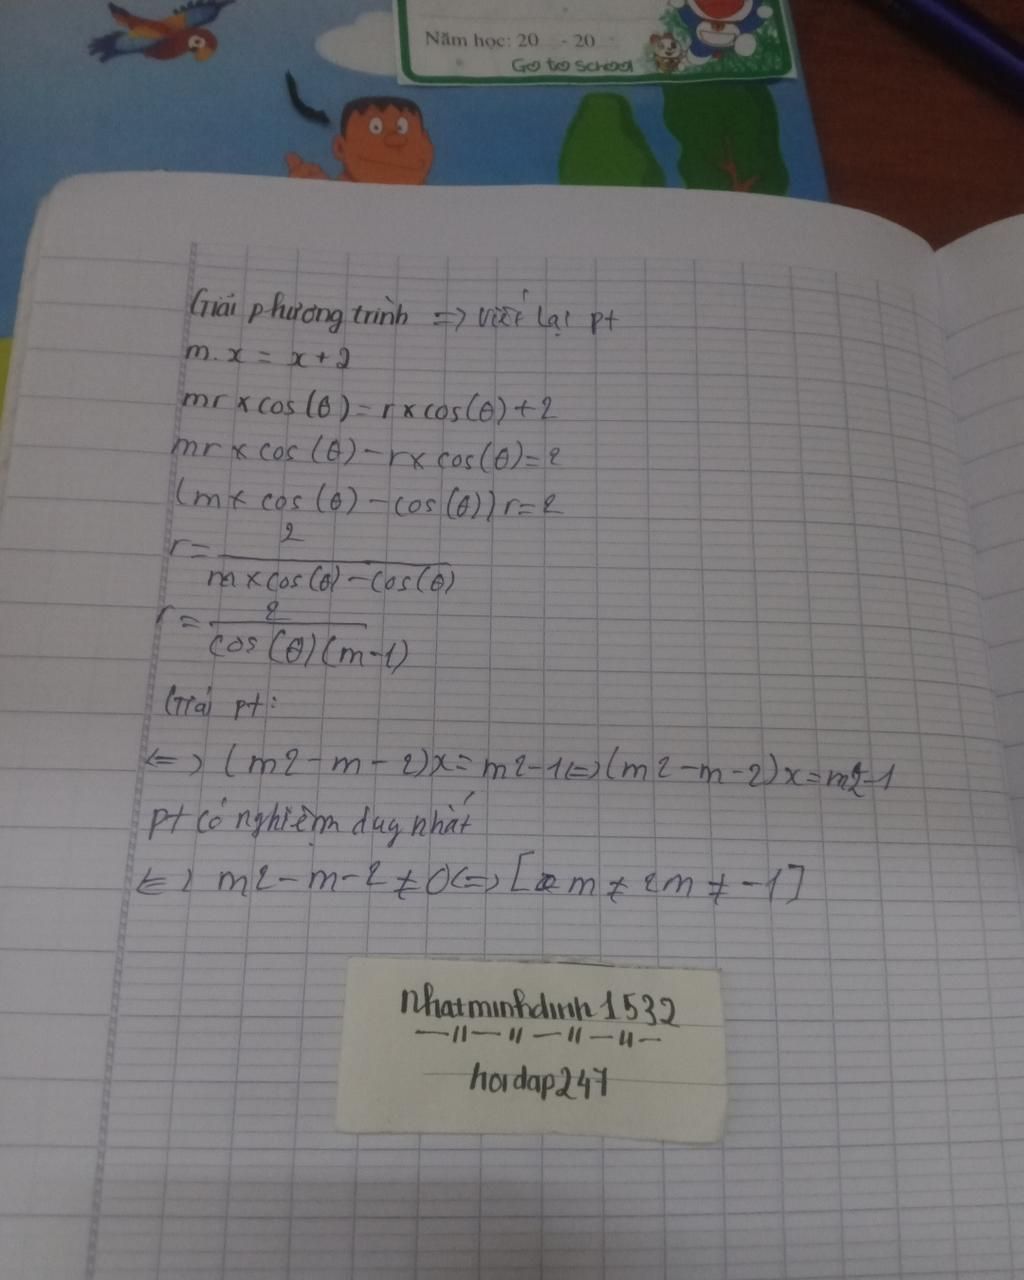 Năm học: 20 - 20
Go to school
Giải phương trình => viết lại pt
m. x = x + 2
mr x cos (θ) = r x cos(θ) + 2
mr x cos (θ) - r x cos(θ) = 2
(m x cos (θ) - cos(θ)) r = 2
r = 2
m x cos(θ) - cos(θ)
r = 2
cos (θ) (m-1)
Giải pt:
<=> (m2 - m - 2)x = m2-1 <=> (m2 -m -2) x = m2-1
pt có nghiệm duy nhất
<=> m2 - m - 2 ≠ 0 <=> [ m ≠ 2m ≠ -1]
nhatminhdinh1532
—||— || — || — || —
hoidap247